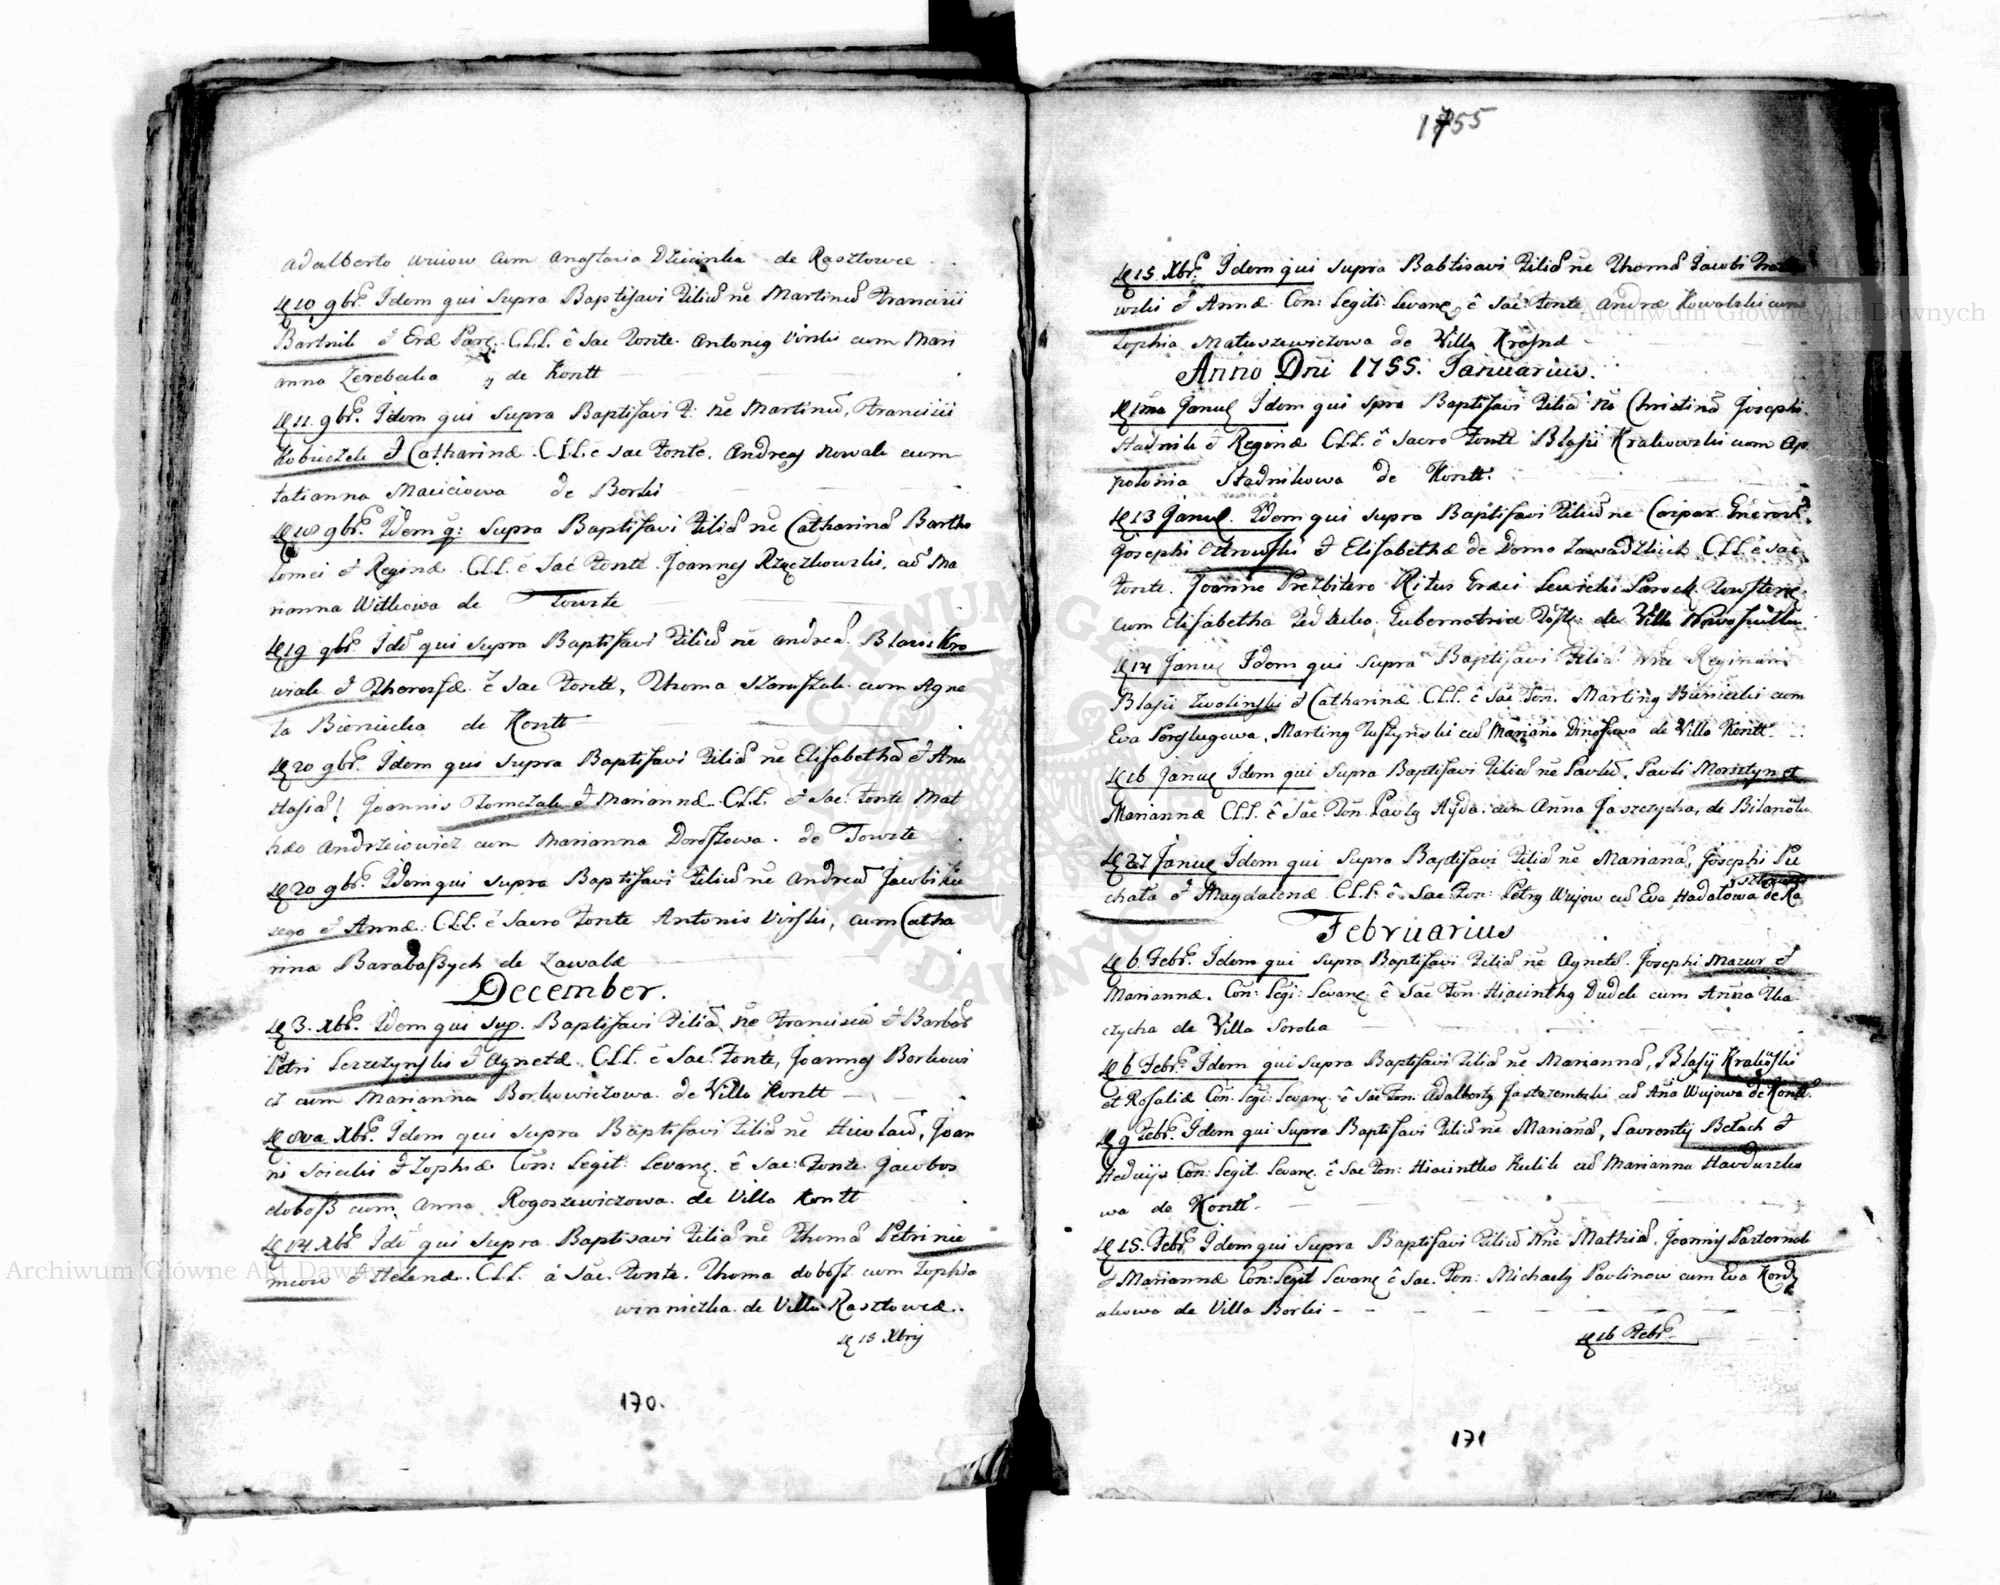 Adalberto Wuiow cum Anastasia de Rasztowce
10 9br. Idem qui supra Baptisavi Filiũ nẽ Martinũ Francisci
Bartnik et Evæ C.LL. ẽ Sac Fonte. Antonig Virski cum Mari
anna Zerebecka de Kontt
11. 9br. Idem qui supra Baptisavi F: nẽ Martinũ, Francisci
et Catharinæ C.LL. ẽ sac Fonte. Andreas Nowak cum
tatianna Maciciowa de Borki
18 9br. Idem q: supra Baptisavi Filiã nẽ Catharinã Bartho
lomei et Reginæ C.LL. ẽ Sac Fonte Joannes cũ Ma
rianna Witkowa de Touste
19 9br. Idẽ qui supra Baptisavi Filiũ nẽ Andreã. Blasii Kro
wiak et Theressæ ẽ Sac Fonte, Thoma cum Agne
ta Bieniecka de Kontt
20 9br. Idem qui supra Baptisavi Filiã nẽ Elisabethã et Ana
stasiã! Joannis Tomczak et Mariannæ C.LL. ẽ Sac: Fonte Mat
hæo Andrzeiowicz cum Marianna Doroszowa. de Touste
20 9br. Idem qui supra Baptisavi Filiũ nẽ Andreã Jacobi
sego et Annæ C.LL. ẽ Sacro Fonte Antonio Virski, cum Catha
rina Barabaszych de Zawale
December.
3. Xbr. Idem qui sup. Baptisavi Filiã nẽ Franciscã et Barbarã
Petri et Agnetæ C.LL. ẽ Sac. Fonte, Joannes Borkowi
cz cum Marianna Borkowiczowa. de Villa Kontt
8va Xbr. Idem qui supra Baptisavi Filiũ nẽ Nicolaũ, Joan
ni et Zophiæ Con: Legit: Levans. ẽ Sac: Fonte Jacobos
dobosz cum Anna Rogoszewiczowa. de Villa Kontt
14 Xbr. Idẽ qui supra Baptisavi Filiũ nẽ Thomã Petri nie
mcow et Helenæ. C.LL. á Sac. Fonte. Thoma dobosz cum Zophia
winniczka de Villa Rasztowce.
15 Xbrij
170.
1755
15. Xbr. Idem qui supra Babtisavi Filiũ nẽ Thomã Jacobi
wski et Annæ Con: Legiti: Levans ẽ Sac: Fonte Andræ Kowalski cum
Zophia Matuszewiczowa de Villa Krasne
Anno Dni 1755. Januarius.
1ma Janue Idem qui spra Baptisavi Filiã nẽ Christinã Josephi
Stadnik et Reginæ C.LL. ẽ Sacro Fonte Blasii Krakowski cum Ap
polonia Stadnikowa de Kontt.
13 Janue. Idem qui supra Baptisavi Filiũ nẽ Caspar
Josephi Ostrowski et Elisabethæ de Domo Zawadzkich C.LL. ẽ Sac
Fonte. Joanne Prezbitero Ritus Græci
cum Elisabetha Gubernatrice de Villa
14 Janue Idem qui supra Baptisavi Filiã Nẽ Reginam
Blasii Zwolinski et Catharinæ C.LL. ẽ Sac Fon. Marting Bieniecki cum
Eva, Marting cũ Marianna de Villa Kontt.
16 Janue Idem qui supra Baptisavi Filiũ nẽ Paulũ, Pauli Morsztyn et
Mariannæ C.LL. ẽ Sac. Fon Pauly Hyda cum Anna Jaszczycha, de
27 Janue Idem qui supra Baptisavi Filiã nẽ Marianã, Josephi Pie
chata et Magdalenæ C.LL. ẽ Sac Fon: Petrg Wujow cũ Eva Hadalowa de Ra
sztowce
Februarius
6. Febr. Idem qui supra Baptisavi Filiã nẽ Agnetẽ. Josephi Mazur et
Mariannæ, Con: Legi: Levans ẽ Sac Fon Hiacinthg Dudek cum Anna Tka
czycha de Villa Soroka
6 Febr. Idem qui supra Baptisavi Filiã nẽ Mariannã, Blasij Krakowski
et Rosaliæ Con: Legi: Levans ẽ Sac Fon Adalberty Jastrzembski cũ Ana Wujowa de Kontt.
9 Febr. Idem qui supra Baptisavi Filiã nẽ Marianã, Laurentij Betach et
Hedwijs Con: Legit. Levans ẽ Sac Fon: Hiacintho Kulik cũ Marianna Hawduszko
wa de Kontt.
15. Febr. Idem qui supra Baptisavi Filiũ Nnẽ Mathiã, Joannis Pasternak
et Mariannæ Con: Legit Levans ẽ Sac. Fon: Michaelg Paulinow cum Eva
akowa de Villa Borki
16 Febr.
171
Archiwum Główne Akt Dawnych
Archiwum Główne Akt Dawnych